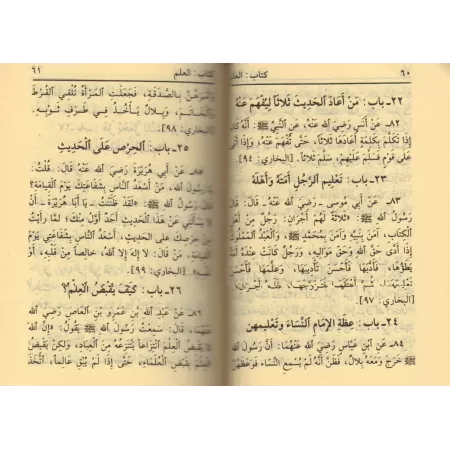 ٦٠
كتاب: العلم
٢٢ـ باب: مَنْ أَعَادَ الحَدِيثَ ثَلَاثاً لِيُفْهَمَ عَنْهُ
٨٢ـ عَنْ أَنَسٍ رَضِيَ الله عَنْهُ، عَنِ النَّبِيِّ ﷺ:
إِذَا تَكَلَّمَ بِكَلِمَةٍ أَعَادَهَا ثَلَاثاً، حَتَّى تُفْهَمَ عَنْهُ، وَإِذَا
عَلَى قَوْمٍ فَسَلَّمَ عَلَيْهِمْ، سَلَّمَ ثَلَاثاً. [البخاري: ٩٤]
٢٣ـ باب: تَعْلِيمِ الرَّجُلِ أَمَتَهُ وَأَهْلَهُ
٨٣ـ عَنْ أَبِي مُوسَى ـ رَضِيَ الله عَنْهُ ـ قَالَ: قَالَ
رَسُولُ الله ﷺ: «ثَلَاثَةٌ لَهُمْ أَجْرَانِ: رَجُلٌ مِنْ أَهْلِ
الكِتَابِ، آمَنَ بِنَبِيِّهِ وَآمَنَ بِمُحَمَّدٍ ﷺ، وَالعَبْدُ المَمْلُوكُ
إِذَا أَدَّى حَقَّ الله وَحَقَّ مَوَالِيهِ، وَرَجُلٌ كَانَتْ عِنْدَهُ
يَطَؤُهَا، فَأَدَّبَهَا فَأَحْسَنَ تَأْدِيبَهَا، وَعَلَّمَهَا فَأَحْسَنَ
تَعْلِيمَهَا، ثُمَّ أَعْتَقَهَا فَتَزَوَّجَهَا، فَلَهُ أَجْرَانِ».
[البخاري: ٩٧]
٢٤ ـ باب: عِظَةِ الإِمَامِ النِّسَاءَ وَتَعْلِيمِهِنَّ
٨٤ـ عَنِ ابْنِ عَبَّاسٍ رَضِيَ الله عَنْهُمَا: أَنَّ رَسُولَ الله
ﷺ خَرَجَ وَمَعَهُ بِلَالٌ، فَظَنَّ أَنَّهُ لَمْ يُسْمِعِ النِّسَاءَ فَوَعَظَهُنَّ
كتاب: العلم
٦١
بِالصَّدَقَةِ، فَجَعَلَتِ المَرْأَةُ تُلْقِي القُرْطَ
وَالخَاتَمَ، وَبِلَالٌ يَأْخُذُ فِي طَرَفِ ثَوْبِهِ.
[البخاري: ٩٨]
٢٥ـ باب: الحِرْصِ عَلَى الحَدِيثِ
عَنْ أَبِي هُرَيْرَةَ رَضِيَ الله عَنْهُ قَالَ: قُلْتُ:
رَسُولَ الله، مَنْ أَسْعَدُ النَّاسِ بِشَفَاعَتِكَ يَوْمَ القِيَامَةِ؟
رَسُولُ الله ﷺ: «لَقَدْ ظَنَنْتُ ـ يَا أَبَا هُرَيْرَةَ ـ أَنْ
عَنْ هَذَا الحَدِيثِ أَحَدٌ أَوَّلَ مِنْكَ؛ لِمَا رَأَيْتُ
حِرْصِكَ عَلَى الحَدِيثِ، أَسْعَدُ النَّاسِ بِشَفَاعَتِي يَوْمَ
مَنْ قَالَ: لَا إِلَهَ إِلَّا الله، خَالِصاً مِنْ قَلْبِهِ، أَوْ
[البخاري: ٩٩]
٢٦ـ باب: كَيْفَ يُقْبَضُ العِلْمُ؟
عَنْ عَبْدِ الله بْنِ عَمْرِو بْنِ العَاصِ رَضِيَ الله
قَالَ: سَمِعْتُ رَسُولَ الله ﷺ يَقُولُ: «إِنَّ الله
يَقْبِضُ العِلْمَ انْتِزَاعاً يَنْتَزِعُهُ مِنَ العِبَادِ، وَلَكِنْ يَقْبِضُ
بِقَبْضِ العُلَمَاءِ، حَتَّى إِذَا لَمْ يُبْقِ عَالِماً، اتَّخَذَ